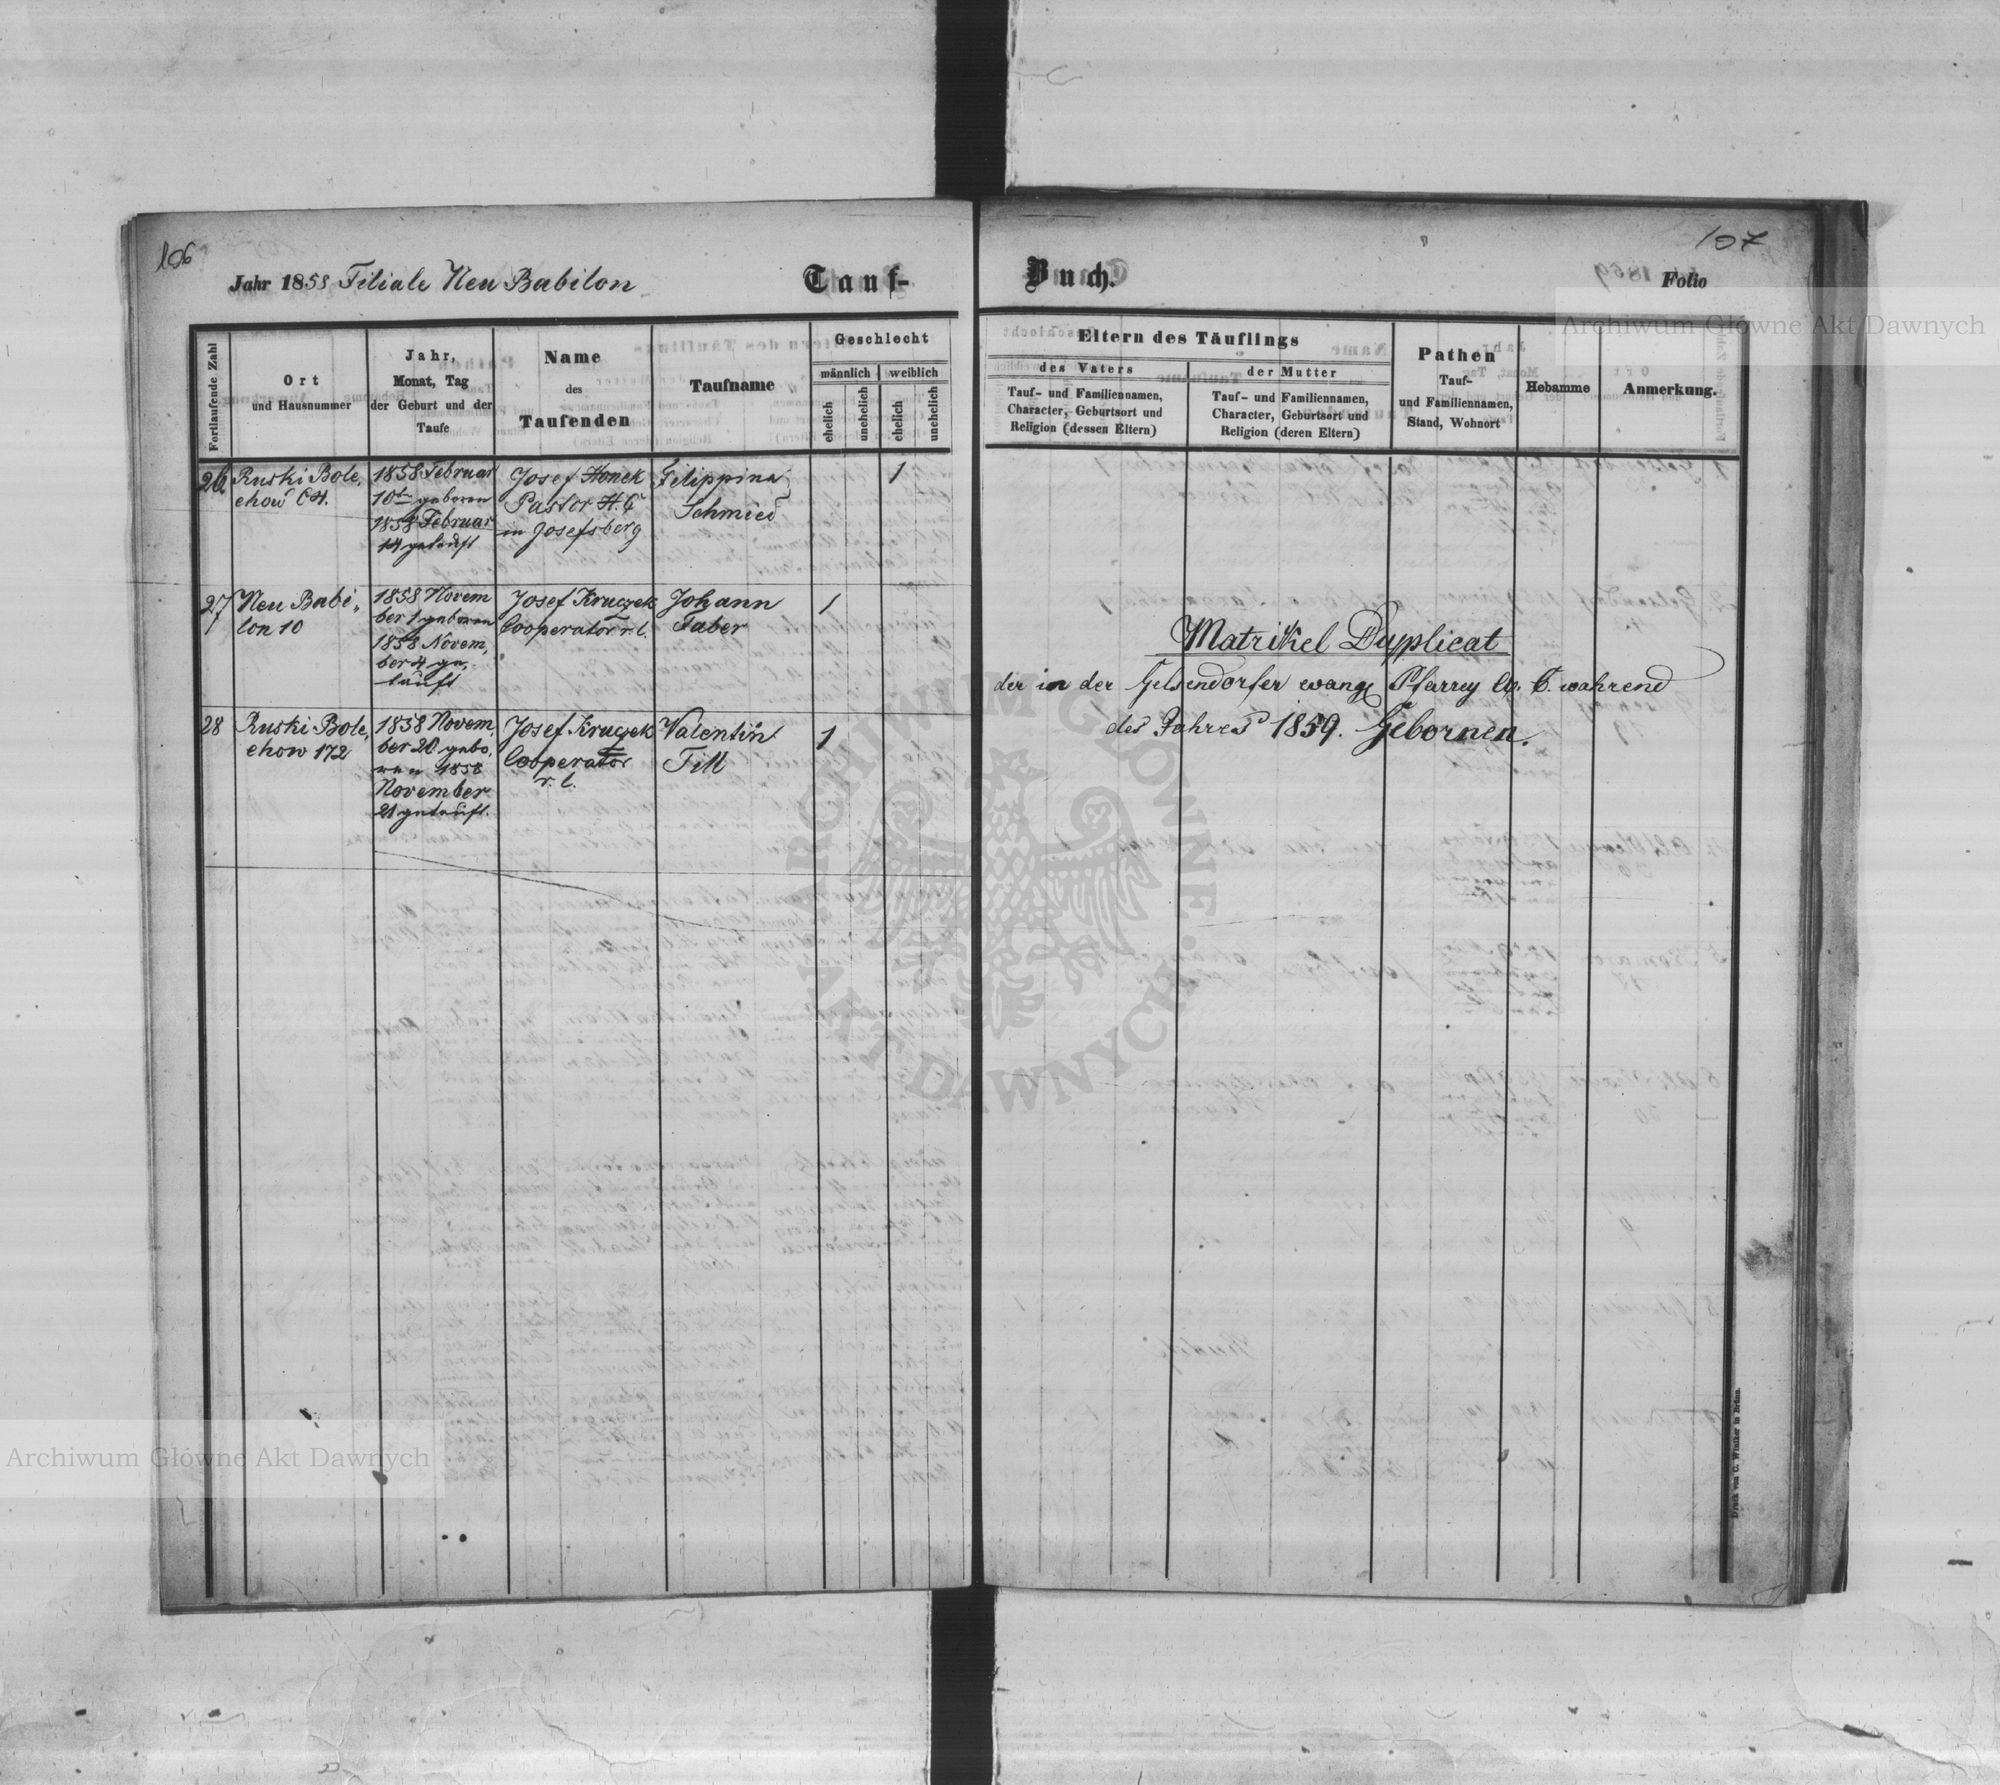 106
Jahr 1858 Filiale Neu Babilon
Tauf-
Fortlaufende Zahl
Ort
und Hausnummer
Jahr,
Monat, Tag
der Geburt und der
Taufe
Name
des
Taufenden
Taufname
Geschlecht
männlich
weiblich
ehelich
unehelich
ehelich
unehelich
26.
Ruski Bole,
chow
1858 Februar
10ten geboren
1858 Februar
14 getauft
Josef Honek
Pastor H. C
in Josefsberg
Filippina
Schmied
1
27
Neu Babi,
lon 10
1858 Novem
ber 1 geboren
1858 Novem,
ber 4 ge,
tauft
Josef Kruczek
Cooperator r. l.
Johann
Faber
1
28
Ruski Bole,
chow 172
1858 Novem,
ber 20 gebo,
ren 1858
November
21 getauft.
Josef Kruczek
Cooperator
r. l.
Valentin
Till
1
107
Buch.
Folio
Eltern des Täuflings
des Vaters
Tauf- und Familiennamen,
Character, Geburtsort und
Religion (dessen Eltern)
der Mutter
Tauf- und Familiennamen,
Character, Geburtsort und
Religion (deren Eltern)
Pathen
Tauf-
und Familiennamen,
Stand, Wohnort
Hebamme
Anmerkung.
Matrikel Duplicat
der in der Gelsendorfer evang Pfarrey während
des Jahres 1859. Gebornen.
Druck von C. Winiker in Brünn.
Archiwum Główne Akt Dawnych
ARCHIWUM GŁÓWNE
AKT DAWNYCH
Archiwum Główne Akt Dawnych